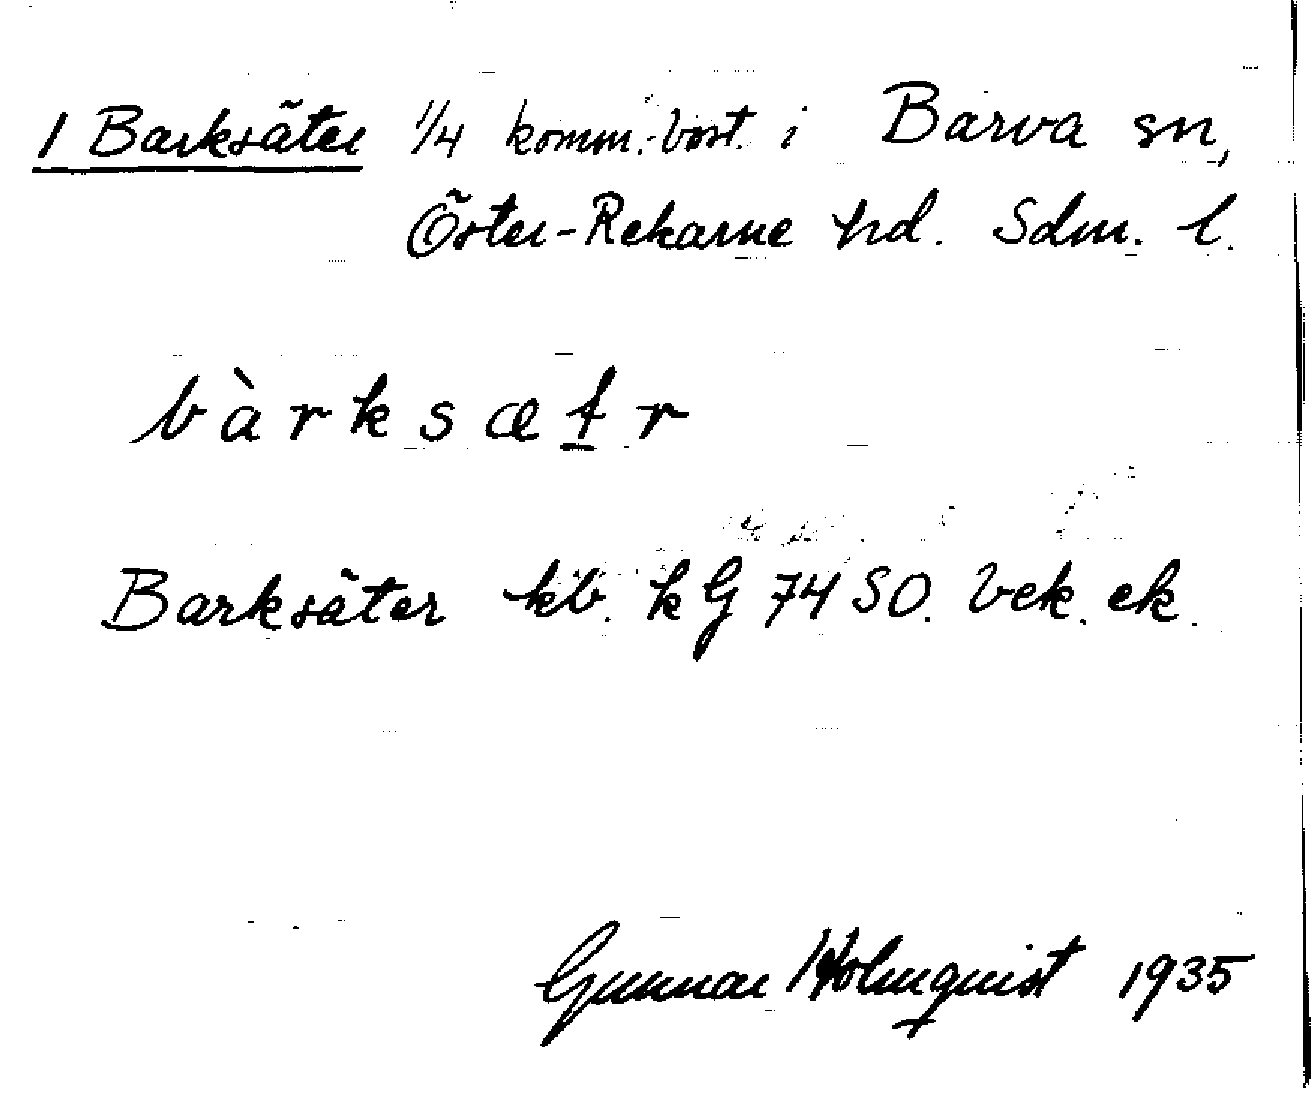 1 Barksäter 1/4 komm.-bost. i Barva sn,
Öster-Rekarne hd. Sdm. l.
bàrksætr
Barksäter kb. kG 74 SO. bek. ek.
Gunnar Holmquist 1935